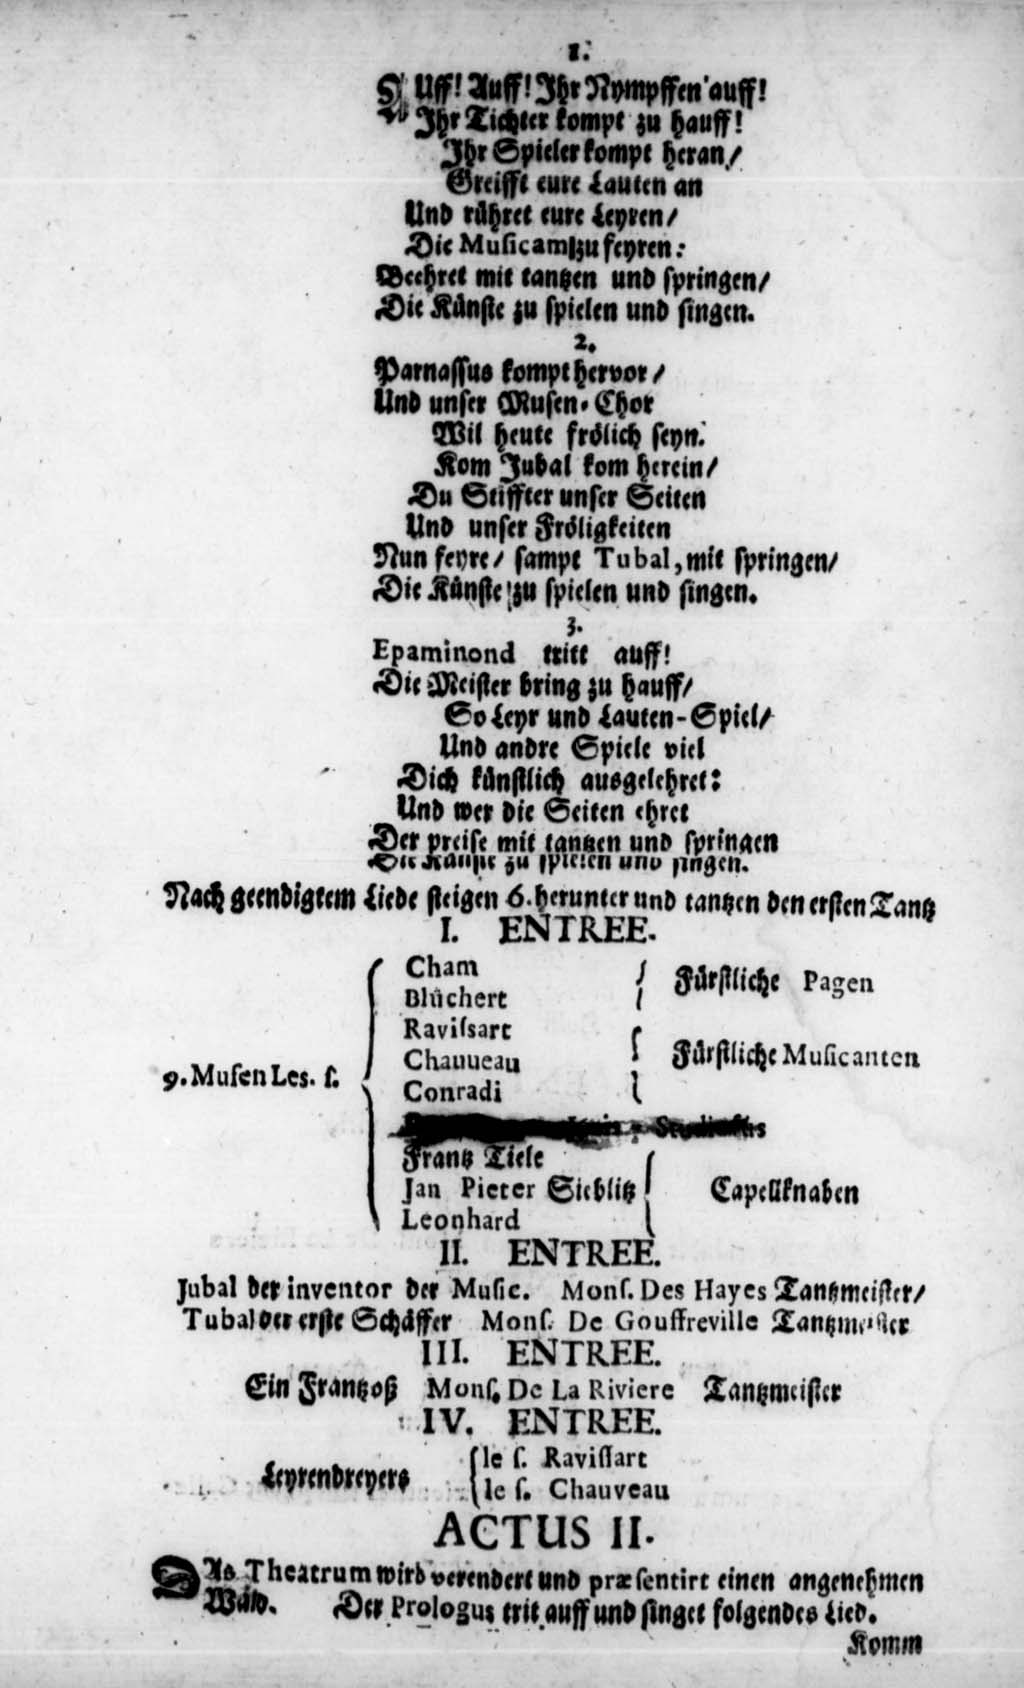 1.
AUff! Auff! Ihr Nympffen auff!
Ihr Tichter kompt zu hauff!
Ihr Spieler kompt heran/
Greifft eure Lauten an
Und rühret eure Leyren/
Die Musicam zu feyren:
Beehret mit tantzen und springen/
Die Künste zu spielen und singen.
2.
Parnassus kompt hervor/
Und unser Musen-Chor
Wil heute frölich seyn.
Kom Jubal kom herein/
Du Stiffter unser Seiten
Und unser Fröligkeiten
Nun feyre/ sampt Tubal, mit springen/
Die Künste zu spielen und singen.
3.
Epaminond tritt auff!
Die Meister bring zu hauff/
So Leyr und Lauten-Spiel/
Und andre Spiele viel
Dich künstlich ausgelehret:
Und wer die Seiten ehret
Der preise mit tantzen und springen
Die Künste zu spielen und singen.
Nach geendigtem Liede steigen 6. herunter und tantzen den ersten Tantz
I. ENTREE.
Cham
Blüchert
Fürstliche Pagen
Ravissart
Chauueau
Conradi
Fürstliche Musicanten
9. Musen Les. s.
Studiosus
Frantz Tiele
Jan Pieter Sieblitz
Leonhard
Capellknaben
II. ENTREE.
Jubal der inventor der Music. Mons. Des Hayes Tantzmeister/
Tubal der erste Schäffer Mons. De Gouffreville Tantzmeister
III. ENTREE.
Ein Frantzoß Mons. De La Riviere Tantzmeister
IV. ENTREE.
Leyrendreyers
le s. Ravissart
le s. Chauveau
ACTUS II.
DAs Theatrum wird verendert und præsentirt einen angenehmen
Wald. Der Prologus trit auff und singet folgendes Lied.
Komm